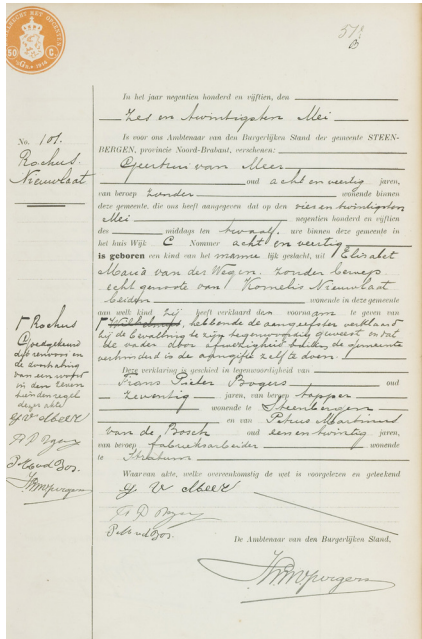 50 C.
No. 101.
Rochus
Nieuwlaat
In het jaar negentien honderd en vijftien, den
Zes en twintigsten Mei
Is voor ons Ambtenaar van den Burgerlijken Stand der gemeente STEEN-
BERGEN, provincie Noord-Brabant, verschenen:
Geertrui van Meer
oud acht en veertig jaren,
van beroep zonder wonende binnen
deze gemeente, die ons heeft aangegeven dat op den vier en twintigsten
Mei negentien honderd en vijftien
des middags ten twaalf ure binnen deze gemeente in
het huis Wijk C Nommer acht en veertig
is geboren een kind van het mannelijk geslacht, uit Elisabet
Maria van der Wegen, zonder beroep,
echtgenoote van Kornelis Nieuwlaat
beiden wonende in deze gemeente
aan welk kind zij heeft verklaard den voornaam te geven van
hebbende de aangeefster verklaard
bij de bevalling te zijn tegenwoordig geweest en dat
de vader door afwezigheid buiten de gemeente
verhinderd is de aangifte zelf te doen.
Deze verklaring is geschied in tegenwoordigheid van
Frans Pieter Bogers oud
zeventig jaren, van beroep tapper
wonende te Steenbergen
en van Petrus Martinus
van de Bosch oud een en twintig jaren,
van beroep fabrieksarbeider wonende
te
Waarvan akte, welke overeenkomstig de wet is voorgelezen en geteekend
G V Meer
P M v d Bos.
De Ambtenaar van den Burgerlijken Stand,
Rochus
Goedgekeurd
de renvooi en
de doorhaling
van een woord
in den
regel
dezer akte
G V Meer
P M v d Bos.